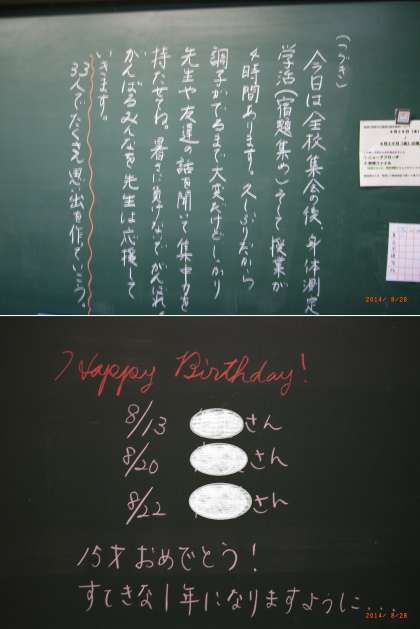 (つづき)
今日は全校集会の後、身体測定
学活(宿題集め)そして授業が
4時間あります。久しぶりだから
調子がでるまで大変だけどしっかり
先生や友達の話を聞いて集中力を
持たせてね。暑さに負けないでがんばれ。
がんばるみんなを先生は応援して
いきます。
33人でたくさん思い出を作っていこう。
2014/ 8/28
Happy Birthday!
8/13 さん
8/20 さん
8/22 さん
15才おめでとう!
すてきな1年になりますように...
2014/ 8/28